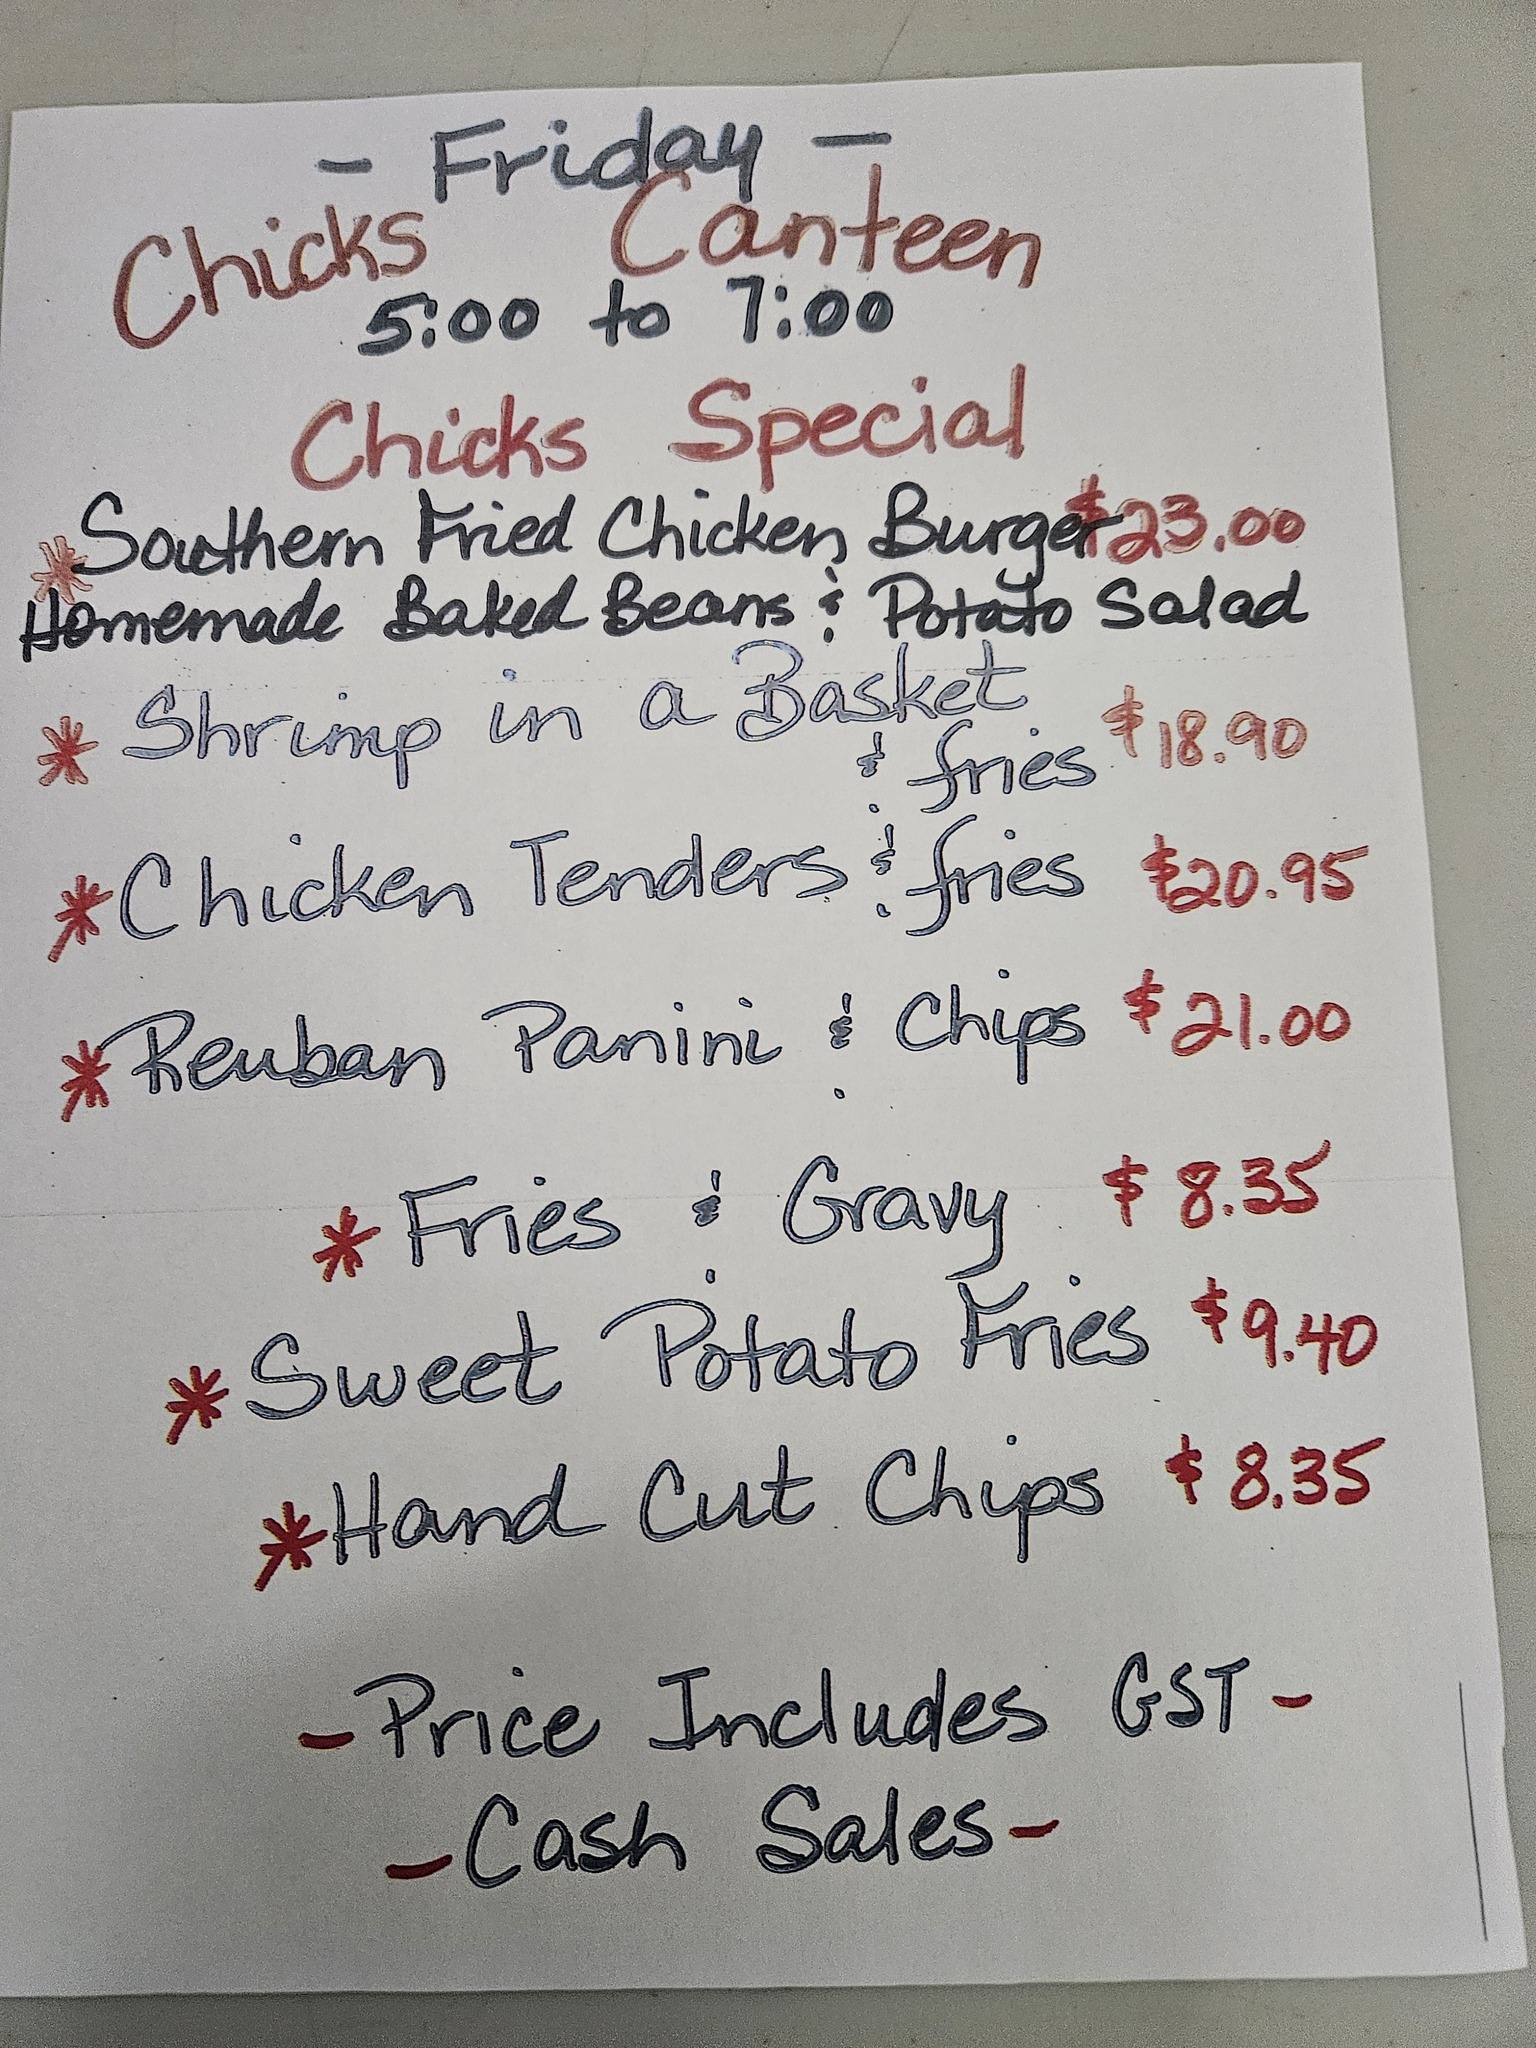 - Friday -
Chicks Canteen
5:00 to 7:00
Chicks Special
* Southern Fried Chicken Burger $23.00
Homemade Baked Beans & Potato Salad
* Shrimp in a Basket
& fries $18.90
* Chicken Tenders & fries $20.95
* Reuban Panini & Chips $21.00
* Fries & Gravy $8.35
* Sweet Potato Fries $9.40
* Hand Cut Chips $8.35
- Price Includes GST -
- Cash Sales -